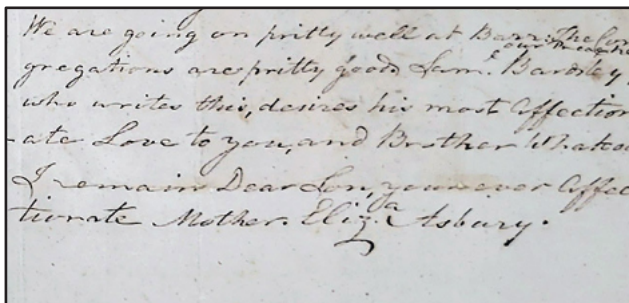 We are going on pritty well at Barr. The Con
gregations are pritty good Sam.l Bardsley
who writes this, desires his most Affection
-ate Love to you, and Brother Whatco
I remain Dear Son, your ever Affec
tionate Mother. Eliz.a Asbury.